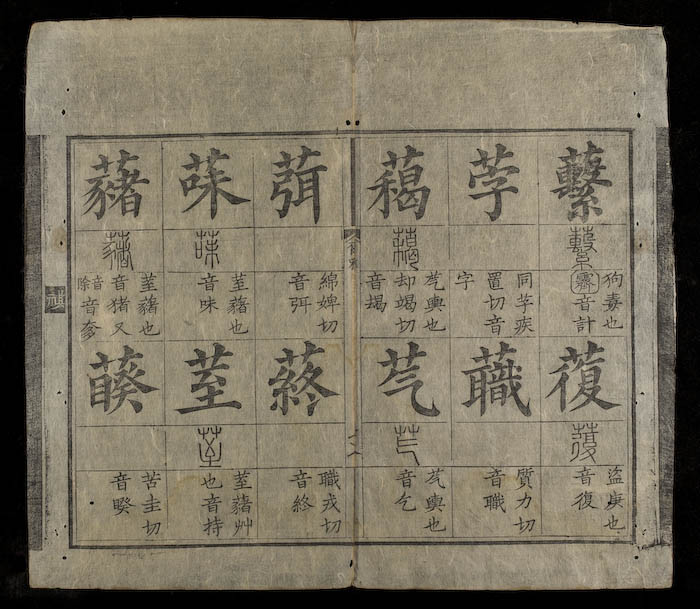 蘻
蘻
狗毒也
齌音計
荸
同芓疾
置切音
字
藒
藒
芞輿也
却竭切
音朅
葞
綿婢切
音弭
菋
菋
荎藸也
音味
藸
藸
荎藸也
音猪又
音除音奓
蕧
蕧
盜庚也
音復
蘵
質力切
音職
芞
芞
芞輿也
音乞
蔠
職戎切
音終
荎
荎
荎藸艸
也音持
藈
苦圭切
音睽